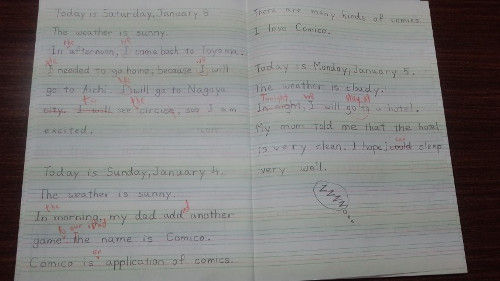 Today is Saturday, January 3
The weather is sunny.
the we
In afternoon, I came back to Toyama.
We we
I needed to go home, because I will
go to Aichi. I will go to Nagoya
the
city. I will see circus, so I am
excited.
Today is Sunday, January 4.
The weather is sunny.
the
In morning, my dad add another
game. The name is Comico.
an
Comico is application of comics.
There are many kinds of comics.
I love Comico.
Today is Monday, January 5.
The weather is cloudy.
Tonight, we
In night, I will go to a hotel.
My mom told me that the hotel
is very clean. I hope I could sleep
very well.